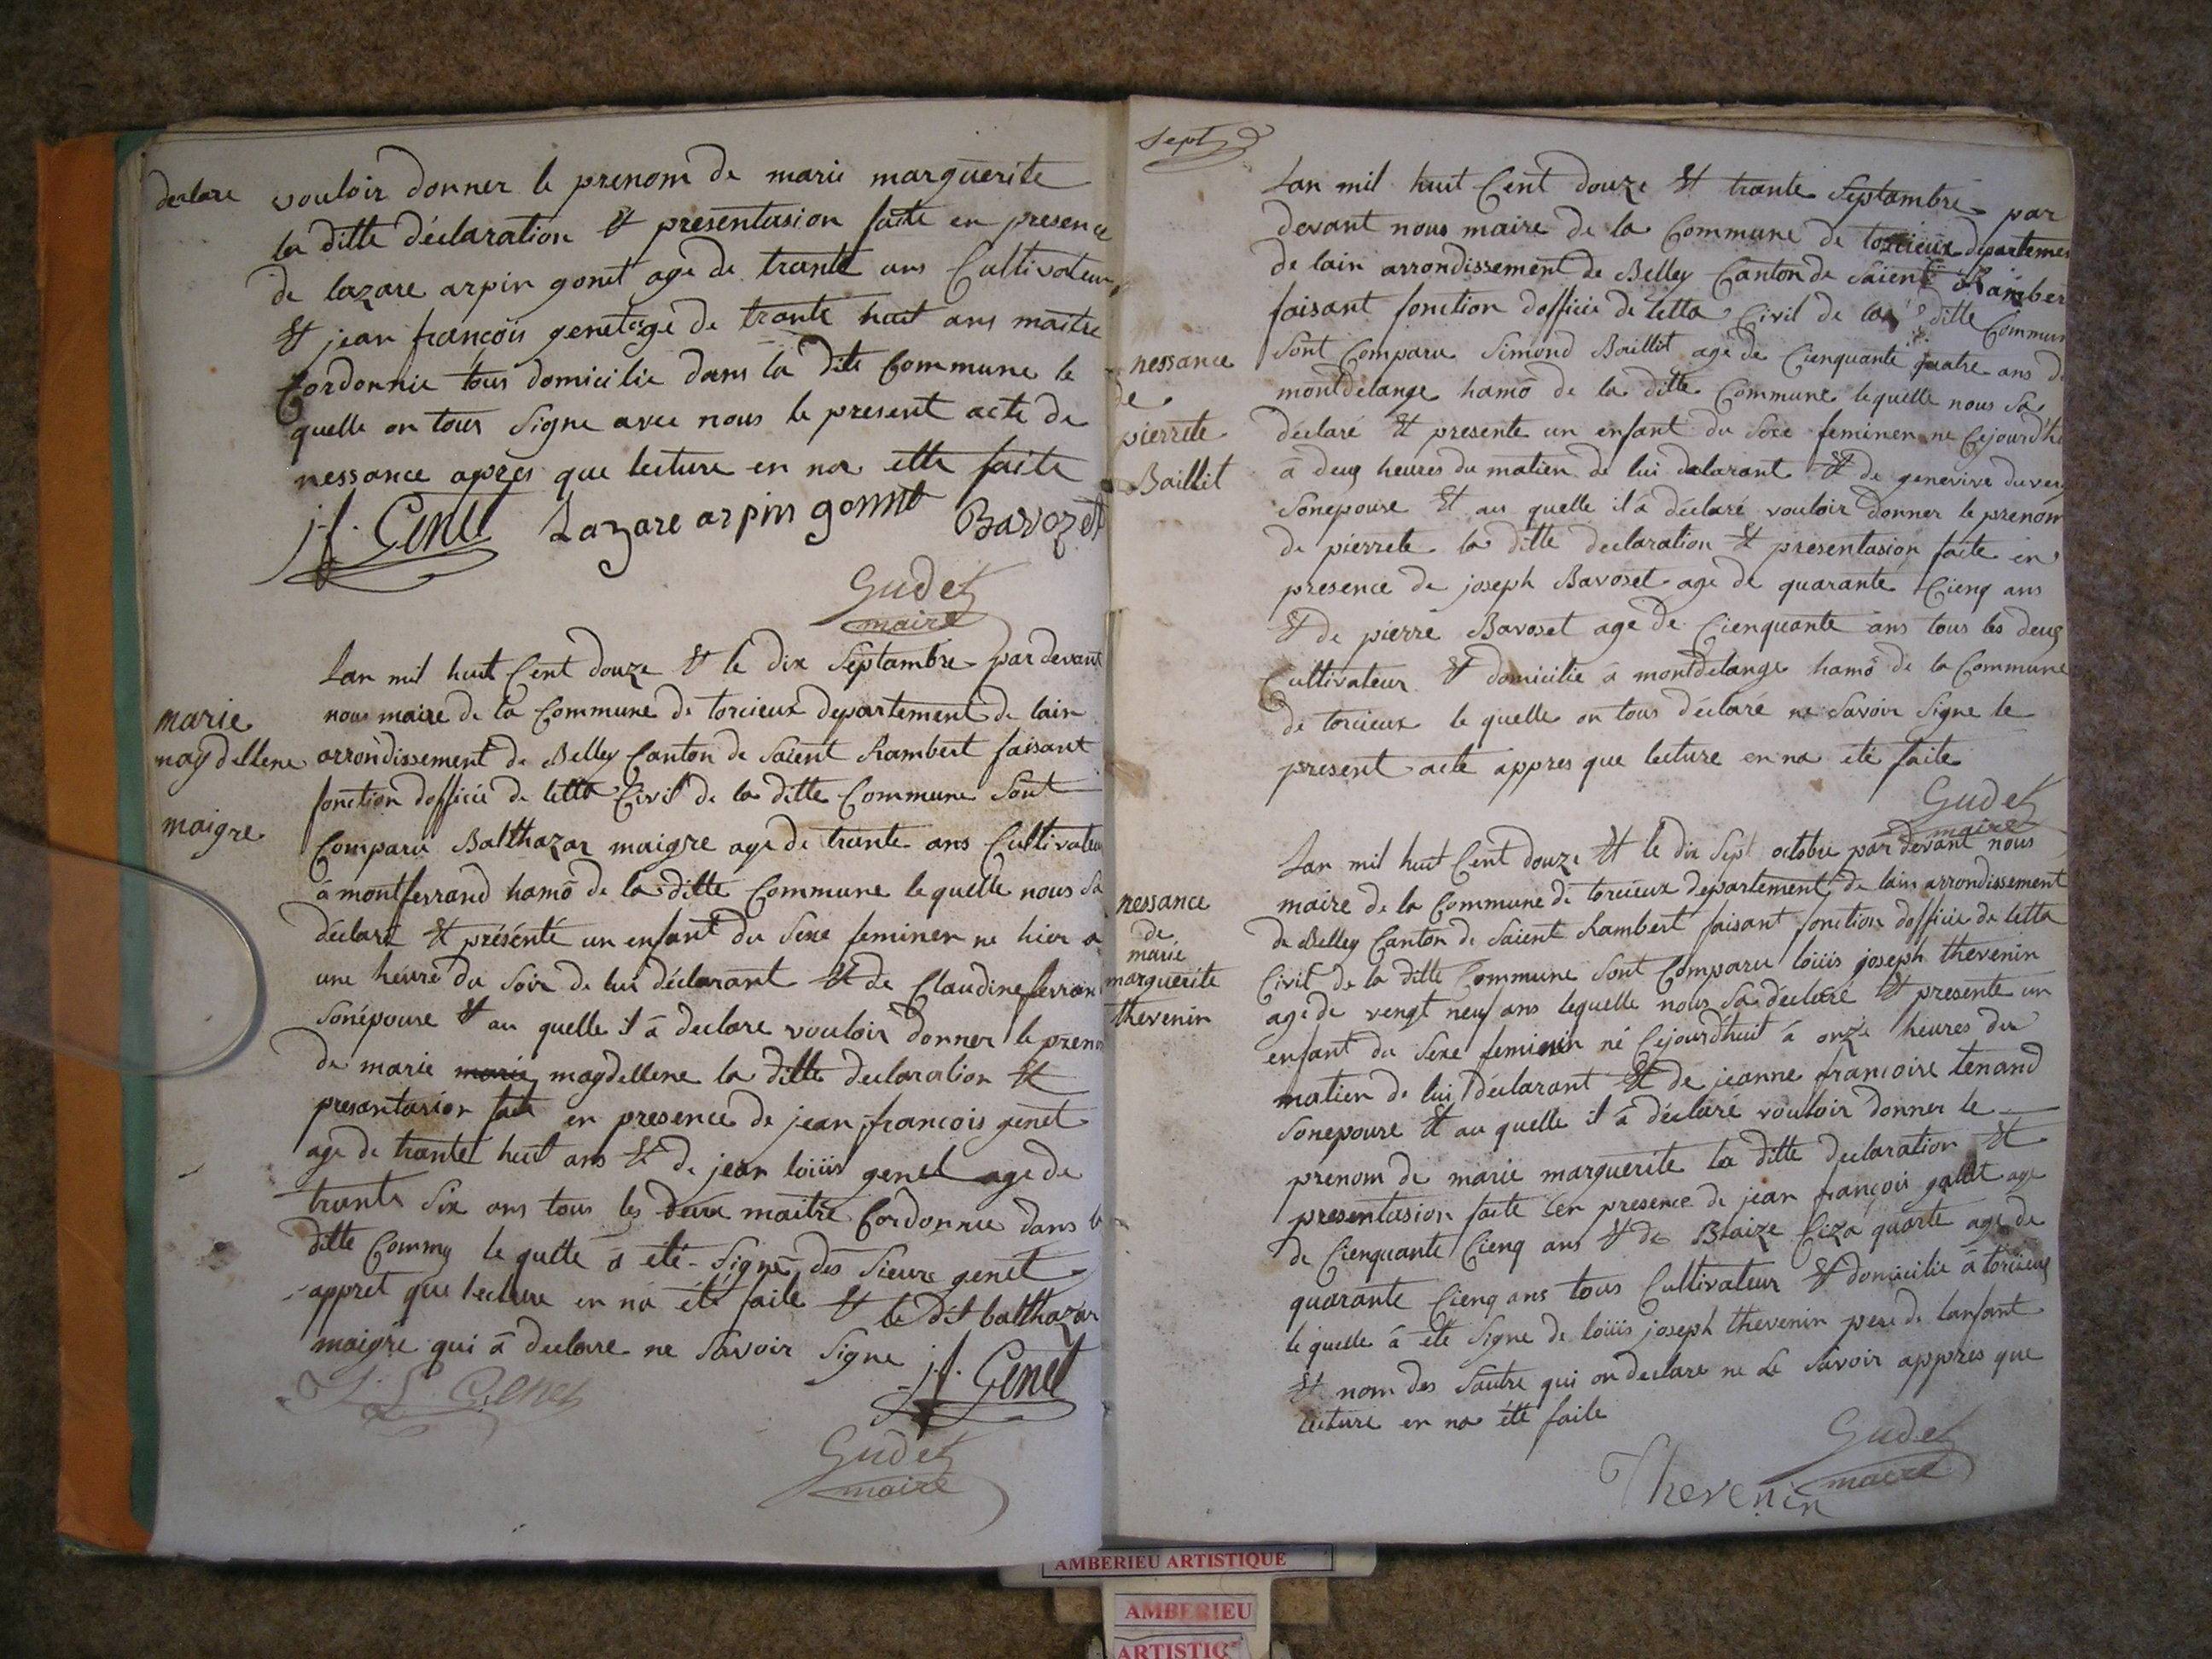 declare vouloir donner le prenom de marie marguerite
la ditte déclaration et presentasion faite en presence
de lazare arpin gonet age de trante ans Cultivateur
et jean francois genet age de trante huit ans maitre
Cordonnie tous domicilie dans la dite Commune le
quelle on tous Signe avec nous le present acte de
nessance apres que lecture en na ette faite
j.f. Genet Lazare arpin gonnet Bavozet
Gudet
maire
marie
magdellene
maigre
Lan mil huit Cent douze et le dix Septambre par devant
nous maire de la Commune de torcieux departement de lain
arrondissement de Belley Canton de Saient Rambert faisant
fonction dofficie de letta Civil de la ditte Commune Sont
Comparu Balthazar maigre age de trante ans Cultivateu
á montferrand hamô de la ditte Commune le quelle nous Sa
déclaré et présénté un enfant du Sexe feminen ne hier a
une heure du Soir de lui déclarant et de Claudine ferran
Sonépouse et au quelle il á declare vouloir donner le preno
de marie marie magdellene la ditte declaration et
presantasion faite en presence de jean francois genet
age de trante huit ans et de jean loiiis genet age de
trante Six ans tous les deux maitre Cordonnie dans la
ditte Commu le quelle á été Signe des Sieurs genet
appret que lecture en na été faite et le dit balthazar
maigre qui á declare ne Savoir Signe
j.f. Genet
J. L. Genet
Gudet
maire
Sept
Lan mil huit Cent douze et trante Septambre par
devant nous maire de la Commune de torcieux departemen
de lain arrondissement de Belley Canton de Saient Ramber
faisant fonction dofficie de letta Civil de la ditte Commun
Sont Comparu Simond Baillit age de Cienquante quatre ans de
montdelange hamô de la ditte Commune le quelle nous Sa
déclaré et presente un enfant du Sexe feminen ne Cejourdhu
á deux heures du matien de lui declarant et de genevive duver
Sonepouse et au quelle il á déclaré vouloir donner le prenom
de pierrete la ditte declaration et presentasion faite en
presence de joseph Bavoset age de quarante Cienq ans
et de pierre Bavoset age de Cienquante ans tous les deux
Cultivateur et domicilie á montdelange hamô de la Commune
de torcieux le quelle on tous déclaré ne Savoir Signe le
present acte appres que lecture en na été faite
nessance
de
pierrete
Baillit
Gudet
maire
Lan mil huit Cent douze et le dix Sept octobre par devant nous
maire de la Commune de torcieux departement de lain arrondissement
de Belley Canton de Saient Rambert faisant fonction dofficie de letta
Civil de la ditte Commune Sont Comparu loiiis joseph thevenin
age de vengt neuf ans lequelle nous Sa déclaré et presente un
enfant du Sexe feminin né Cejourdhuit á onze heures du
matien de lui déclarant et de jeanne francoise tenand
Sonepouse et au quelle il á déclaré vouloir donner le
prenom de marie marguerite la ditte declaration et
presentasion faite en presence de jean françois galet age
de Cienquante Cienq ans et de Blaize Ciza quarte age de
quarante Cienq ans tous Cultivateur et domicilie á torcieux
le quelle á été Signe de loiiis joseph thevenin pere de lanfant
et nom des Sautre qui on declare ne Le Savoir appres que
lecture en na été faite
nessance
de
marie
marguerite
thevenin
Gudet
maire
Thevenin
AMBERIEU ARTISTIQUE
AMBERIEU
ARTISTIQ